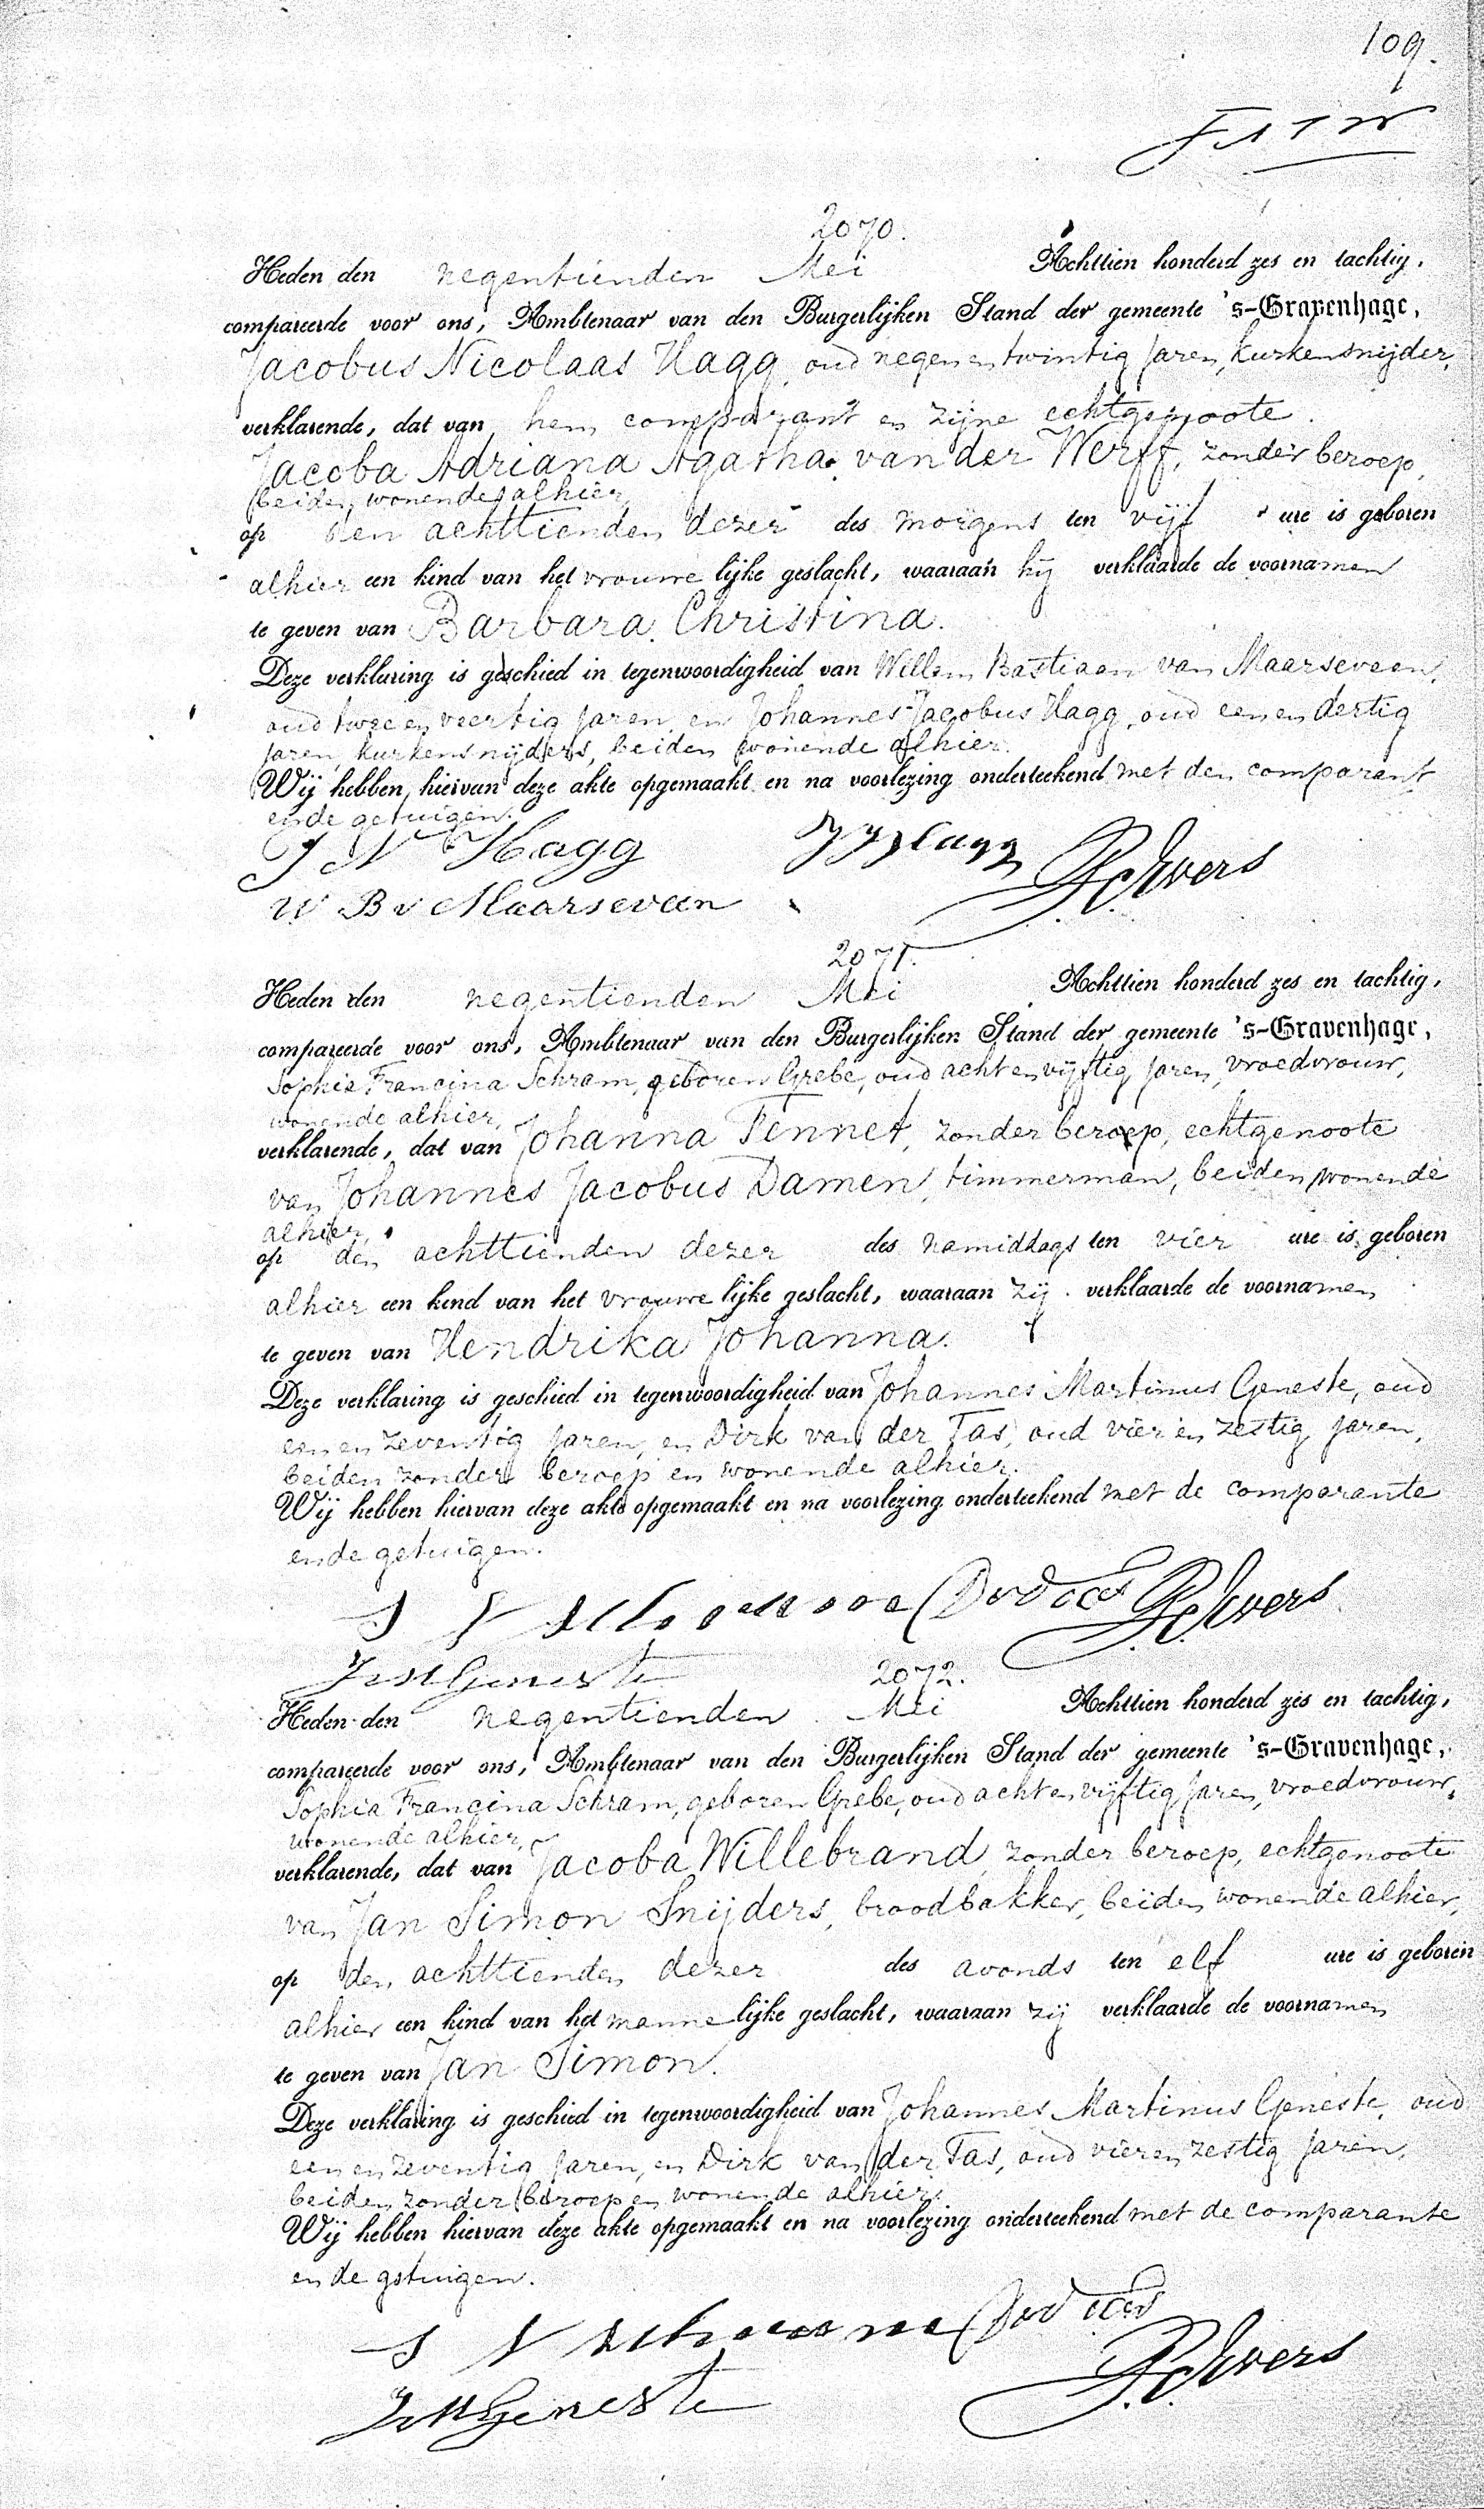 109.
2070.
Heden den negentienden Mei Achttien honderd zes en tachtig,
compareerde voor ons, Ambtenaar van den Burgerlijken Stand der gemeente 's-Gravenhage,
Jacobus Nicolaas Hagg, oud negen en twintig jaren, kurkensnijder,
verklarende, dat van hem comparant en zijne echtgenoote
Jacoba Adriana Agatha van der Werff, zonder beroep,
beiden wonende alhier,
op den achttienden dezer des morgens ten vijf ure is geboren
alhier een kind van het vrouwelijke geslacht, waaraan hij verklaarde de voornamen
te geven van Barbara Christina.
Deze verklaring is geschied in tegenwoordigheid van Willem Bastiaan van Maarseveen,
oud twee en veertig jaren en Johannes Jacobus Hagg, oud een en dertig
jaren, kurkensnijders, beiden wonende alhier.
Wij hebben hiervan deze akte opgemaakt en na voorlezing onderteekend met den comparant
en de getuigen.
J N Hagg J J Hagg
W B v Maarseveen
2071.
Heden den negentienden Mei Achttien honderd zes en tachtig,
compareerde voor ons, Ambtenaar van den Burgerlijken Stand der gemeente 's-Gravenhage,
Sophia Francina Schram, geboren Grebe, oud acht en vijftig jaren, vroedvrouw,
wonende alhier,
verklarende, dat van Johanna Pennet, zonder beroep, echtgenoote
van Johannes Jacobus Damen, timmerman, beiden wonende
alhier,
op den achttienden dezer des namiddags ten vier ure is geboren
alhier een kind van het vrouwelijke geslacht, waaraan zij verklaarde de voornamen
te geven van Hendrika Johanna.
Deze verklaring is geschied in tegenwoordigheid van Johannes Martinus Geneste, oud
een en zeventig jaren, en Dirk van der Tas, oud vier en zestig jaren,
beiden zonder beroep en wonende alhier.
Wij hebben hiervan deze akte opgemaakt en na voorlezing onderteekend met de comparante
en de getuigen.
J M Geneste
2072.
Heden den negentienden Mei Achttien honderd zes en tachtig,
compareerde voor ons, Ambtenaar van den Burgerlijken Stand der gemeente 's-Gravenhage,
Sophia Francina Schram, geboren Grebe, oud acht en vijftig jaren, vroedvrouw,
wonende alhier,
verklarende, dat van Jacoba Willebrand, zonder beroep, echtgenoote
van Jan Simon Snijders, broodbakker, beiden wonende alhier,
op den achttienden dezer des avonds ten elf ure is geboren
alhier een kind van het mannelijke geslacht, waaraan zij verklaarde de voornamen
te geven van Jan Simon.
Deze verklaring is geschied in tegenwoordigheid van Johannes Martinus Geneste, oud
een en zeventig jaren, en Dirk van der Tas, oud vier en zestig jaren,
beiden zonder beroep en wonende alhier.
Wij hebben hiervan deze akte opgemaakt en na voorlezing onderteekend met de comparante
en de getuigen.
J M Geneste